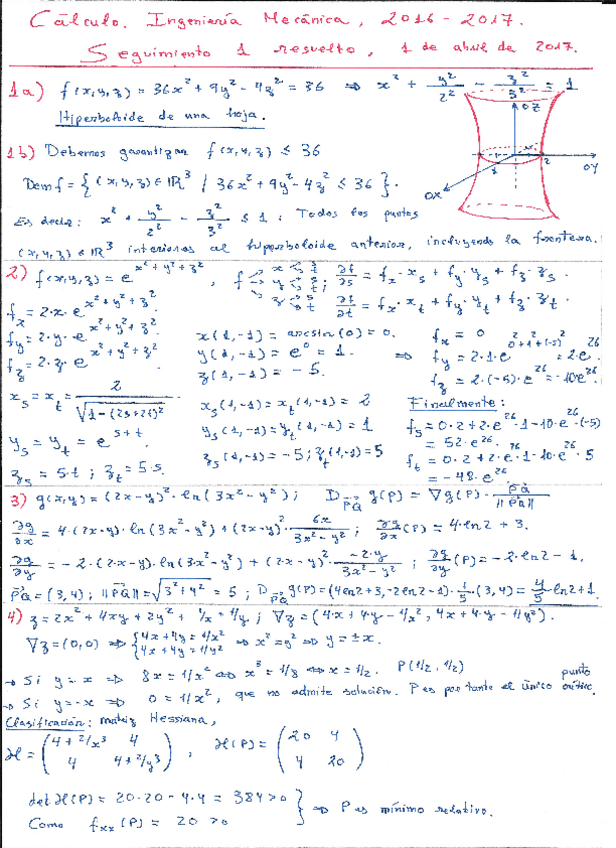 Cálculo. Ingeniería Mecánica, 2016-2017.
Seguimiento 1 resuelto, 1 de abril de 2017.
1a) f(x,y,z) = 36x² + 9y² - 4z² = 36 ⇒ x² + y²/2² - z²/3² = 1
Hiperboloide de una hoja.
OZ
OY
OX
1
2
1b) Debemos garantizar f(x,y,z) ≤ 36
Dom f = {(x,y,z) ∈ ℝ³ / 36x² + 9y² - 4z² ≤ 36}.
Es decir: x² + y²/2² - z²/3² ≤ 1: Todos los puntos
(x,y,z) ∈ ℝ³ interiores al hiperboloide anterior, incluyendo la frontera.
2) f(x,y,z) = e^(x²+y²+z²), f → x → s, t; y → s, t; z → s, t; ∂f/∂s = fx·xs + fy·ys + fz·zs.
∂f/∂t = fx·xt + fy·yt + fz·zt.
fx = 2·x·e^(x²+y²+z²).
fy = 2·y·e^(x²+y²+z²).
fz = 2·z·e^(x²+y²+z²).
x(1,-1) = arcsin(0) = 0.
y(1,-1) = e⁰ = 1.
z(1,-1) = -5.
⇒ fx = 0
fy = 2·1·e^(0²+1²+(-5)²) = 2·e^26.
fz = 2·(-5)·e^26 = -10e^26.
xs = xt = 2/√(1-(2s+2t)²)
ys = yt = e^(s+t).
zs = 5·t; zt = 5·s.
xs(1,-1) = xt(1,-1) = 2
ys(1,-1) = yt(1,-1) = 1
zs(1,-1) = -5; zt(1,-1) = 5
Finalmente:
fs = 0·2 + 2·e^26·1 - 10·e^26·(-5)
= 52·e^26.
ft = 0·2 + 2·e^26·1 - 10·e^26·5
= -48·e^26
3) g(x,y) = (2x-y)²·ln(3x²-y²); D_PQ g(P) = ∇g(P)·PQ/‖PQ‖
∂g/∂x = 4·(2x-y)·ln(3x²-y²) + (2x-y)²·6x/(3x²-y²); ∂g/∂x(P) = 4·ln2 + 3.
∂g/∂y = -2·(2·x-y)·ln(3·x²-y²) + (2·x-y)²·-2·y/(3x²-y²); ∂g/∂y(P) = -2·ln2 - 1.
PQ = (3,4); ‖PQ‖ = √(3²+4²) = 5; D_PQ g(P) = (4ln2+3, -2ln2-1)·1/5·(3,4) = 4/5·ln2+1.
4) z = 2x² + 4xy + 2y² + 1/x + 1/y; ∇z = (4·x+4·y-1/x², 4x+4·y-1/y²).
∇z = (0,0) ⇒ {4x+4y = 1/x² 4x+4y = 1/y² ⇒ x² = y² ⇒ y = ±x.
→ Si y = x ⇒ 8x = 1/x² ⇔ x³ = 1/8 ⇔ x = 1/2. P(1/2, 1/2)
→ Si y = -x ⇒ 0 = 1/x², que no admite solución. P es por tanto el único punto crítico.
Clasificación: matriz Hessiana,
H = (4+2/x³ 4 4 4+2/y³), H(P) = (20 4 4 20)
det H(P) = 20·20 - 4·4 = 384 > 0
Como fxx(P) = 20 > 0 } ⇒ P es mínimo relativo.